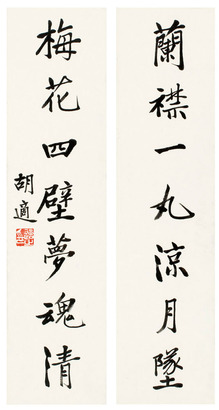 蘭襟一丸涼月墜
梅花四壁夢魂清
胡適